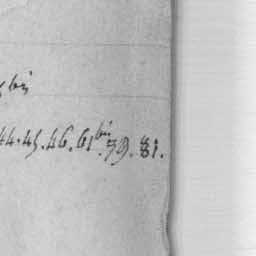 bis
44.45.46.61bis.79.81.